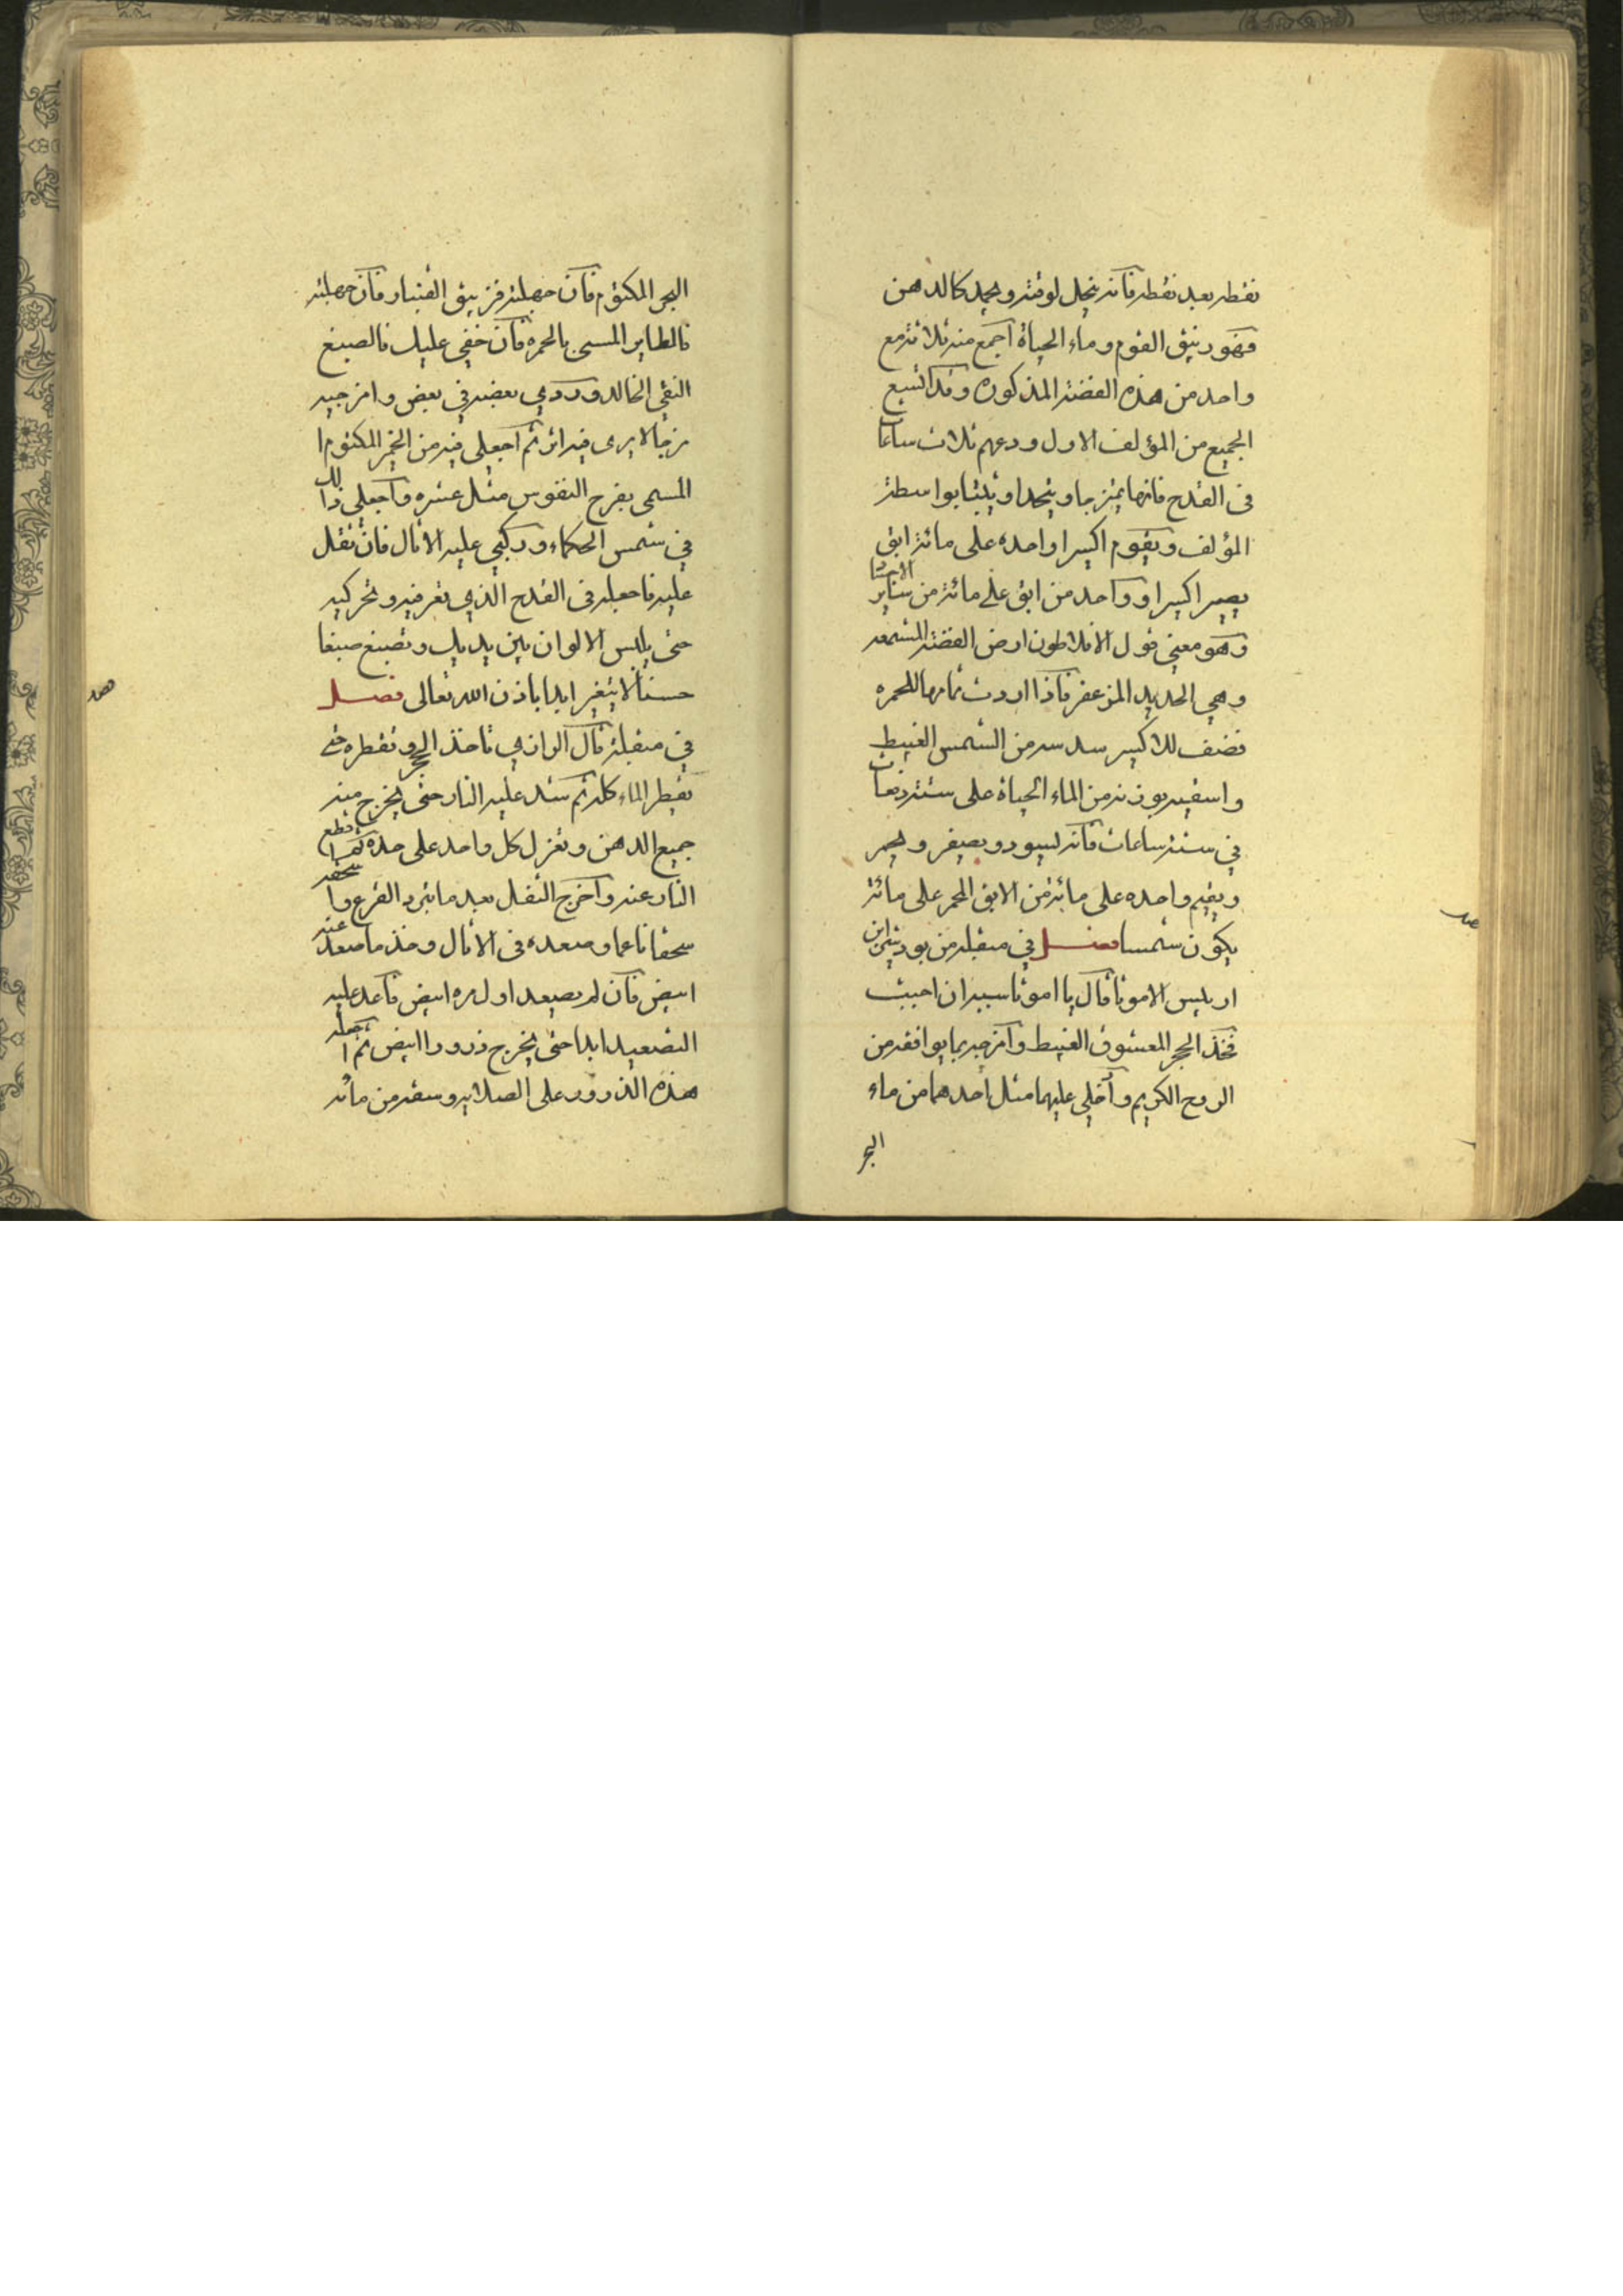 نقطه بعد نقطه فآنه ينحل لوقته ويجمد كالدهن
فهو زيبق القوم وماء الحياة اجمع منه ثلاثة مع
واحد من هذه الفضة المذكوره وقد اشبع
الجميع من المؤلف الاول ودعهم ثلاث ساعات
فى القدح فانهما يمتزجا ويتحدا ويثبتا بواسطة
المؤلف ويقوم اكسيرا واحده على مائة ابق
يصير اكسيرا وواحد من ابق على مائة من ساير الاجساد
وهو معنى قول الافلاطون ارض الفضة المشمعه
وهي الحديد المزعفر فآذا اردت تمامها للحمره
فضف للاكسير سدسه من الشمس الغبيط
واسقيه بوزنه من الماء الحياة على ستة دفعات
في ستة ساعات فآنه يسود ويصفر ويحمر
ويقيم واحده على مائة من الابق المحمر على مائة
يكون شمسا فصل في منقله من بودشير ابن
اريليس الاموثا قال يا اموثاسيه ان احببت
فخذ الحجر المعشوق الغبيط وآمزجيه بما يوافقه من
الروح الكريم وآدخلي عليهما مثل احدهما من ماء
البحر
البحر المكتوم فآن جهلته فزيبق القنبار فآن جهلته
فالطاير المسمى بالحمره فآن خفي عليك فالصبغ
النقي الخالد وردي بعضه في بعض وامزجيه
مزجا لا يرى فيه اثر ثم آجعلي فيه من الخمر المكتوم ا
المسمى بفرح النفوس مثل عشره وآجعلي ذالك
في شمس الحكماء وركبي عليه الاثال فان ثقل
عليه فاجعله فى القدح الذي تعرفيه وتحركيه
حتى يلبس الالوان بين يديك وتصبغ صبغا
حسنا لا يتغير ابدا باذن الله تعالى فصل
في منقلة قال الرازي تآخذ الحجر وتقطره حتى
تقطر الماء كله ثم شد عليه النار حتى يخرج منه
جميع الدهن وتعزل كل واحد على حده ثم اقطع
النار عنه وآخرج الثفل بعد ما تبرد القرع واسحقه
سحقا ناعما وصعده فى الاثال وخذ ما صعد عنه
ابيض فآن لم يصعد اول مره ابيض فآعد عليه
التصعيد ابدا حتى يخرج ذرورا ابيض ثم اجعل
هذه الذرور على الصلايه وسقه من مائه